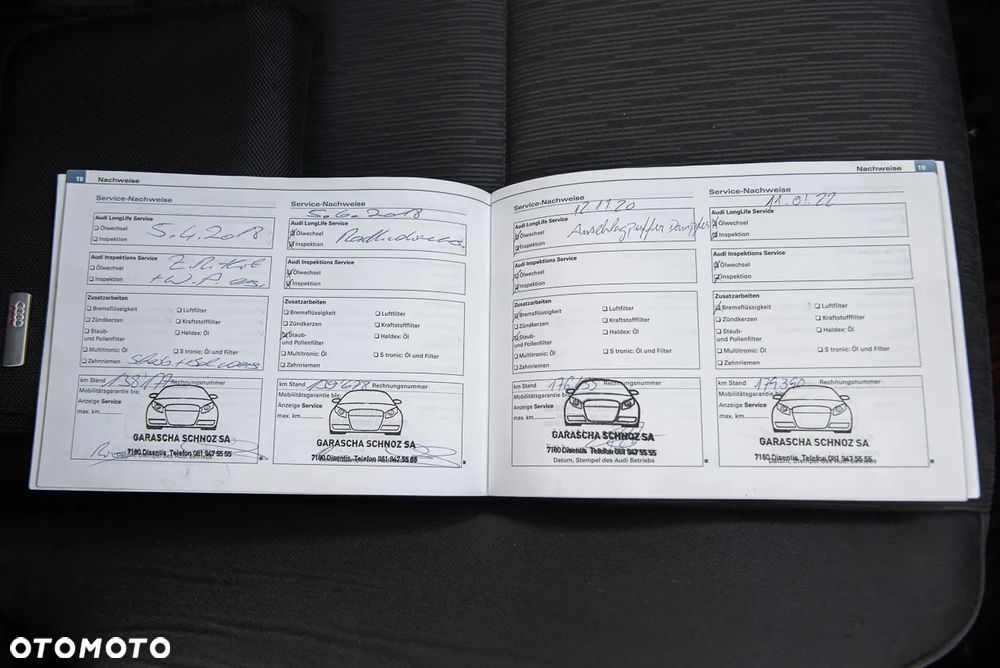 18 Nachweise
Service-Nachweise
Audi LongLife Service
Ölwechsel
Inspektion
5.4.2018
Audi Inspektions Service
Ölwechsel
Inspektion
Zusatzarbeiten
Bremsflüssigkeit
Luftfilter
Zündkerzen
Kraftstofffilter
Staub-
und Pollenfilter
Haldex: Öl
Multitronic: Öl
S tronic: Öl und Filter
Zahnriemen
km Stand 138177 Rechnungsnummer
Mobilitätsgarantie bis:
Anzeige Service
max. km
GARASCHA SCHNOZ SA
7180 Disentis Telefon 081 947 55 55
Datum, Stempel des Audi Betriebs
Service-Nachweise
Audi LongLife Service
Ölwechsel
Inspektion
Audi Inspektions Service
Ölwechsel
Inspektion
Zusatzarbeiten
Bremsflüssigkeit
Luftfilter
Zündkerzen
Kraftstofffilter
Staub-
und Pollenfilter
Haldex: Öl
Multitronic: Öl
S tronic: Öl und Filter
Zahnriemen
km Stand Rechnungsnummer
Mobilitätsgarantie bis:
Anzeige Service
max. km
GARASCHA SCHNOZ SA
7180 Disentis Telefon 081 947 55 55
Nachweise 19
Service-Nachweise
12.11.20
Audi LongLife Service
Ölwechsel
Inspektion
Anschlagpuffer
Audi Inspektions Service
Ölwechsel
Inspektion
Zusatzarbeiten
Bremsflüssigkeit
Luftfilter
Zündkerzen
Kraftstofffilter
Staub-
und Pollenfilter
Haldex: Öl
Multitronic: Öl
S tronic: Öl und Filter
Zahnriemen
km Stand Rechnungsnummer
Mobilitätsgarantie bis:
Anzeige Service
max. km
GARASCHA SCHNOZ SA
7180 Disentis Telefon 081 947 55 55
Datum, Stempel des Audi Betriebs
Service-Nachweise
11.01.22
Audi LongLife Service
Ölwechsel
Inspektion
Audi Inspektions Service
Ölwechsel
Inspektion
Zusatzarbeiten
Bremsflüssigkeit
Luftfilter
Zündkerzen
Kraftstofffilter
Staub-
und Pollenfilter
Haldex: Öl
Multitronic: Öl
S tronic: Öl und Filter
Zahnriemen
km Stand 179390 Rechnungsnummer
Mobilitätsgarantie bis:
Anzeige Service
max. km
GARASCHA SCHNOZ SA
7180 Disentis Telefon 081 947 55 55
Datum, Stempel des Audi Betriebs
OTOMOTO